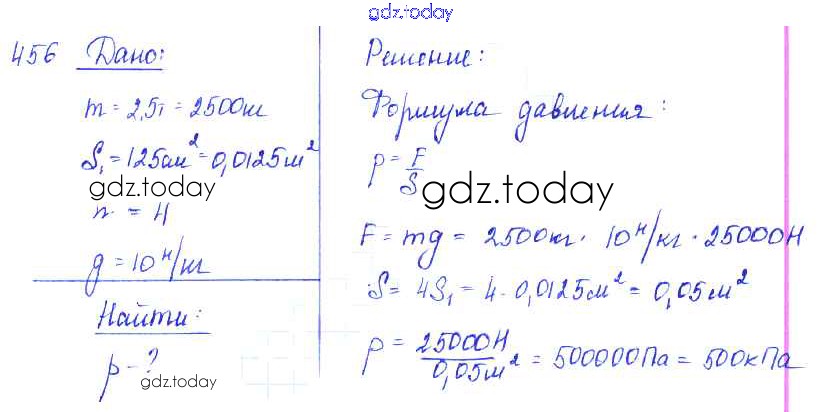 gdz.today
456 Дано:
m = 2,5т = 2500кг
S₁ = 125см² = 0,0125м²
gdz.today
n = 4
g = 10 Н/кг
Найти:
p - ?
gdz.today
Решение:
Формула давления:
p = F/S
gdz.today
F = mg = 2500кг · 10 Н/кг · 25000Н
S = 4S₁ = 4 · 0,0125м² = 0,05м²
p = 25000Н/0,05м² = 500000Па = 500кПа